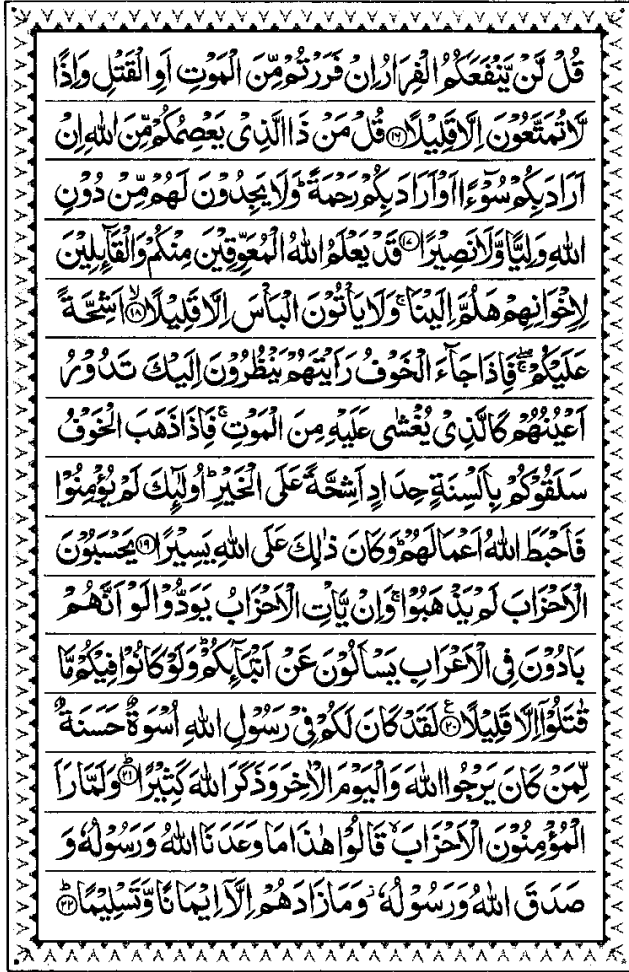 قُلْ لَّنْ يَّنْفَعَكُمُ الْفِرَارُ اِنْ فَرَرْتُمْ مِّنَ الْمَوْتِ اَوِ الْقَتْلِ وَاِذًا
لَّا تُمَتَّعُوْنَ اِلَّا قَلِيْلًا ﴿۱۶﴾ قُلْ مَنْ ذَا الَّذِیْ يَعْصِمُكُمْ مِّنَ اللّٰهِ اِنْ
اَرَادَ بِكُمْ سُوْٓءًا اَوْ اَرَادَ بِكُمْ رَحْمَةً ؕ وَلَا يَجِدُوْنَ لَهُمْ مِّنْ دُوْنِ
اللّٰهِ وَلِيًّا وَّلَا نَصِيْرًا ﴿۱۷﴾ قَدْ يَعْلَمُ اللّٰهُ الْمُعَوِّقِيْنَ مِنْكُمْ وَالْقَآئِلِيْنَ
لِاِخْوَانِهِمْ هَلُمَّ اِلَيْنَا ۚ وَلَا يَاْتُوْنَ الْبَاْسَ اِلَّا قَلِيْلًا ﴿۱۸﴾ۙ اَشِحَّةً
عَلَيْكُمْ ۖۚ فَاِذَا جَآءَ الْخَوْفُ رَاَيْتَهُمْ يَنْظُرُوْنَ اِلَيْكَ تَدُوْرُ
اَعْيُنُهُمْ كَالَّذِیْ يُغْشٰی عَلَيْهِ مِنَ الْمَوْتِ ۚ فَاِذَا ذَهَبَ الْخَوْفُ
سَلَقُوْكُمْ بِاَلْسِنَةٍ حِدَادٍ اَشِحَّةً عَلَی الْخَيْرِ ؕ اُولٰٓئِكَ لَمْ يُؤْمِنُوْا
فَاَحْبَطَ اللّٰهُ اَعْمَالَهُمْ ؕ وَكَانَ ذٰلِكَ عَلَی اللّٰهِ يَسِيْرًا ﴿۱۹﴾ يَحْسَبُوْنَ
الْاَحْزَابَ لَمْ يَذْهَبُوْا ۚ وَاِنْ يَّاْتِ الْاَحْزَابُ يَوَدُّوْا لَوْ اَنَّهُمْ
بَادُوْنَ فِی الْاَعْرَابِ يَسْاَلُوْنَ عَنْ اَنْۢبَآئِكُمْ ؕ وَلَوْ كَانُوْا فِيْكُمْ مَّا
قٰتَلُوْٓا اِلَّا قَلِيْلًا ﴿۲۰﴾ع لَقَدْ كَانَ لَكُمْ فِیْ رَسُوْلِ اللّٰهِ اُسْوَةٌ حَسَنَةٌ
لِّمَنْ كَانَ يَرْجُوا اللّٰهَ وَالْيَوْمَ الْاٰخِرَ وَذَكَرَ اللّٰهَ كَثِيْرًا ﴿۲۱﴾ؕ وَلَمَّا رَاَ
الْمُؤْمِنُوْنَ الْاَحْزَابَ ۙ قَالُوْا هٰذَا مَا وَعَدَنَا اللّٰهُ وَرَسُوْلُهٗ وَ
صَدَقَ اللّٰهُ وَرَسُوْلُهٗ ۫ وَمَا زَادَهُمْ اِلَّآ اِيْمَانًا وَّتَسْلِيْمًا ﴿۲۲﴾ؕ